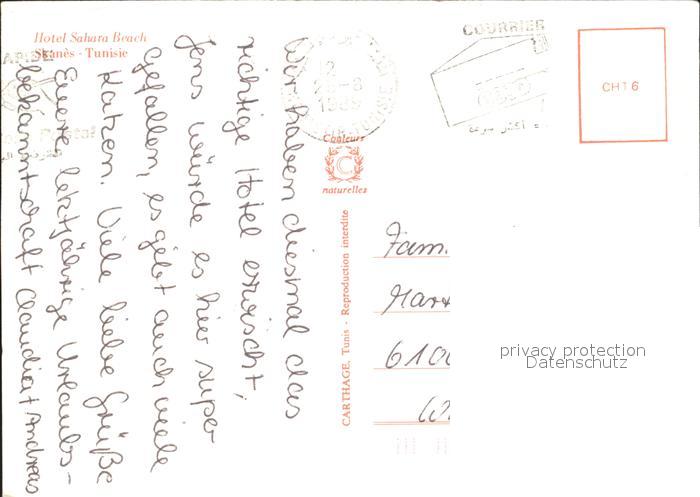 Hotel Sahara Beach
Skanès - Tunisie
Wir haben diesmal das
richtige Hotel erwischt,
Jens würde es hier super
gefallen, es gibt auch viele
Katzen. Viele liebe Grüße
Euere letztjährige Urlaubs-
bekanntschaft Claudia + Andreas
12
1989
COURRIER
Couleurs
C
naturelles
CARTHAGE, Tunis - Reproduction interdite
CH16
Fam.
610
privacy protection
Datenschutz